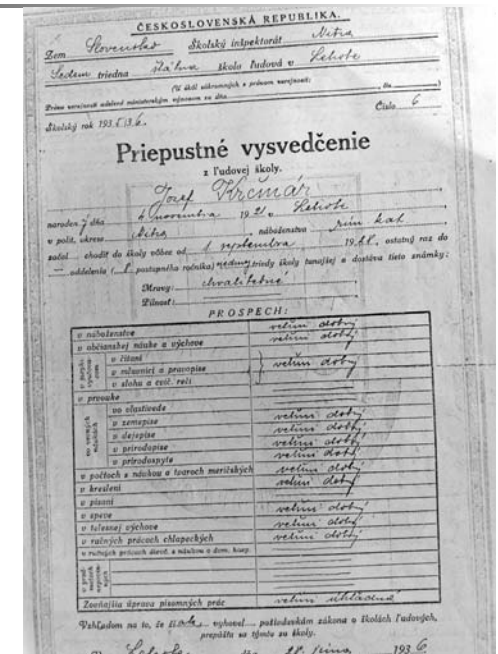 ČESKOSLOVENSKÁ REPUBLIKA.
Zem Slovensko Školský inšpektorát Nitra
Sedem triedna štátna škola ľudová v Lehote
(U škôl súkromných s právom verejnosti:
Právo verejnosti udelené ministerským výnosom zo dňa čís. )
Školský rok 1935/36. Číslo 6
Priepustné vysvedčenie
z ľudovej školy.
Jozef Krčmár
naroden ý dňa 4. novembra 1921 v Lehote
v polit. okrese Nitra náboženstva rím. kat.
začal chodiť do školy vôbec od 1. septembra 19 ostatný raz do
— oddelenia ( postupného ročníka) triedy školy tunajšej a dostáva tieto známky:
Mravy: chvalitebné
Pilnosť:
PROSPECH:
v náboženstve velmi dobrý
v občianskej náuke a výchove velmi dobrý
v čítaní
v mluvnici a pravopise velmi dobrý
v slohu a cvič. reči
v prvouke
vo vlastivede velmi dobrý
v zemepise velmi dobrý
v dejepise velmi dobrý
v prírodopise velmi dobrý
v prírodospyte velmi dobrý
v počtoch s náukou o tvaroch meričských velmi dobrý
v kreslení velmi dobrý
v písaní
v speve velmi dobrý
v telesnej výchove velmi dobrý
v ručných prácach chlapeckých velmi dobrý
v ručných prácach dievč. s náukou o dom. hosp.
Zovňajšia úprava písomných prác velmi úhľadná
Vzhľadom na to, že žiak vyhovel požiadavkám zákona o školách ľudových,
prepúšťa sa týmto zo školy.
júna 1936.